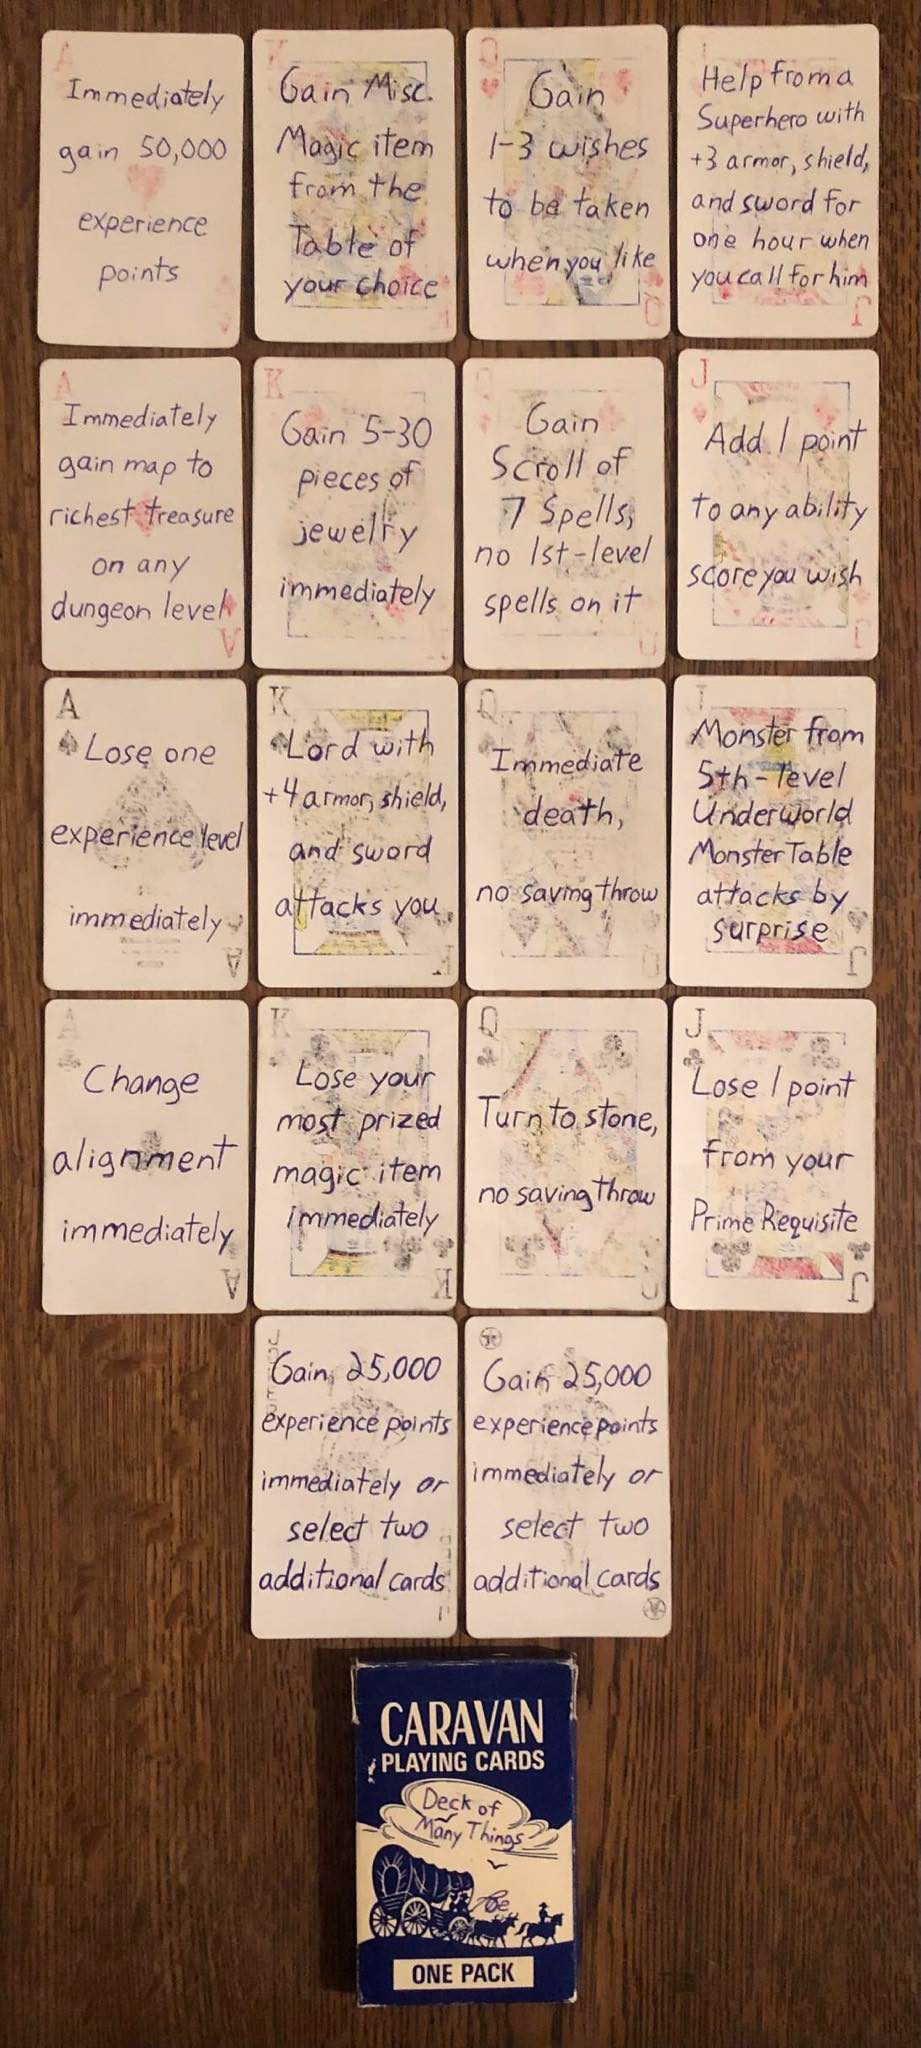 A
Immediately
gain 50,000
experience
points
A
K
Gain Misc.
Magic item
from the
Table of
your choice
K
Q
Gain
1-3 wishes
to be taken
when you like
Q
Help from a
Superhero with
+3 armor, shield,
and sword for
one hour when
you call for him
J
A
Immediately
gain map to
richest treasure
on any
dungeon level
A
K
Gain 5-30
pieces of
jewelry
immediately
Q
Gain
Scroll of
7 Spells,
no 1st-level
spells on it
Q
J
Add 1 point
to any ability
score you wish
J
A
Lose one
experience level
immediately
A
K
Lord with
+4 armor, shield,
and sword
attacks you
K
Q
Immediate
death,
no saving throw
Q
J
Monster from
5th-level
Underworld
Monster Table
attacks by
surprise
J
A
Change
alignment
immediately
A
K
Lose your
most prized
magic item
immediately
K
Q
Turn to stone,
no saving throw
Q
J
Lose 1 point
from your
Prime Requisite
J
Gain 25,000
experience points
immediately or
select two
additional cards
Gain 25,000
experience points
immediately or
select two
additional cards
CARAVAN
PLAYING CARDS
Deck of
Many Things
ONE PACK